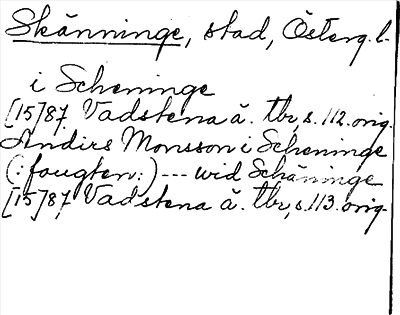 Skänninge, stad, Österg. l.
i Scheninge
[15]87 Vadstena ä. tbr, s. 112. orig.
Andirs Monsson i Scheninge
(: fougten:) --- wid Schäninge
[15]87, Vadstena ä. tbr, s. 113. orig.